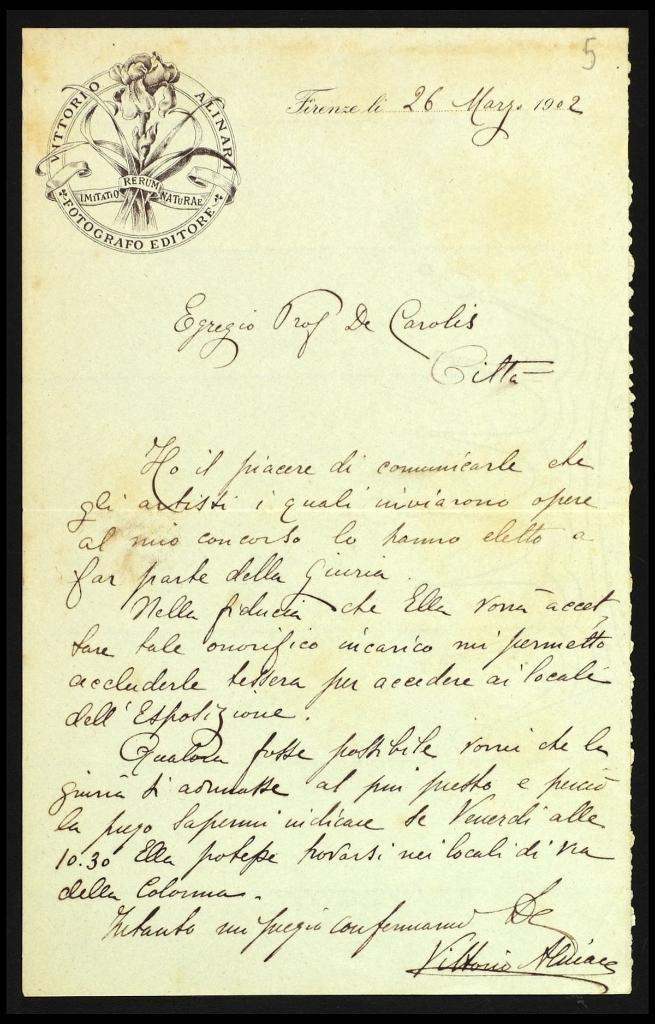 5
VITTORIO ALINARI
IMITATIO RERUM NATURAE
FOTOGRAFO EDITORE
Firenze li 26 Marzo 1902
Egregio Prof De Carolis
Città
Ho il piacere di comunicarle che
gli artisti i quali inviarono opere
al mio concorso lo hanno eletto a
far parte della Giuria.
Nella fiducia che Ella vorrà accet
tare tale onorifico incarico mi permetto
accluderle tessera per accedere ai locali
dell'Esposizione.
Qualora fosse possibile vorrei che la
giuria si adunasse al più presto e perciò
la prego sapermi indicare se Venerdì alle
10:30 Ella potesse trovarsi nei locali di via
della Colonna.
Intanto mi pregio confermarmi
Vittorio Alinari